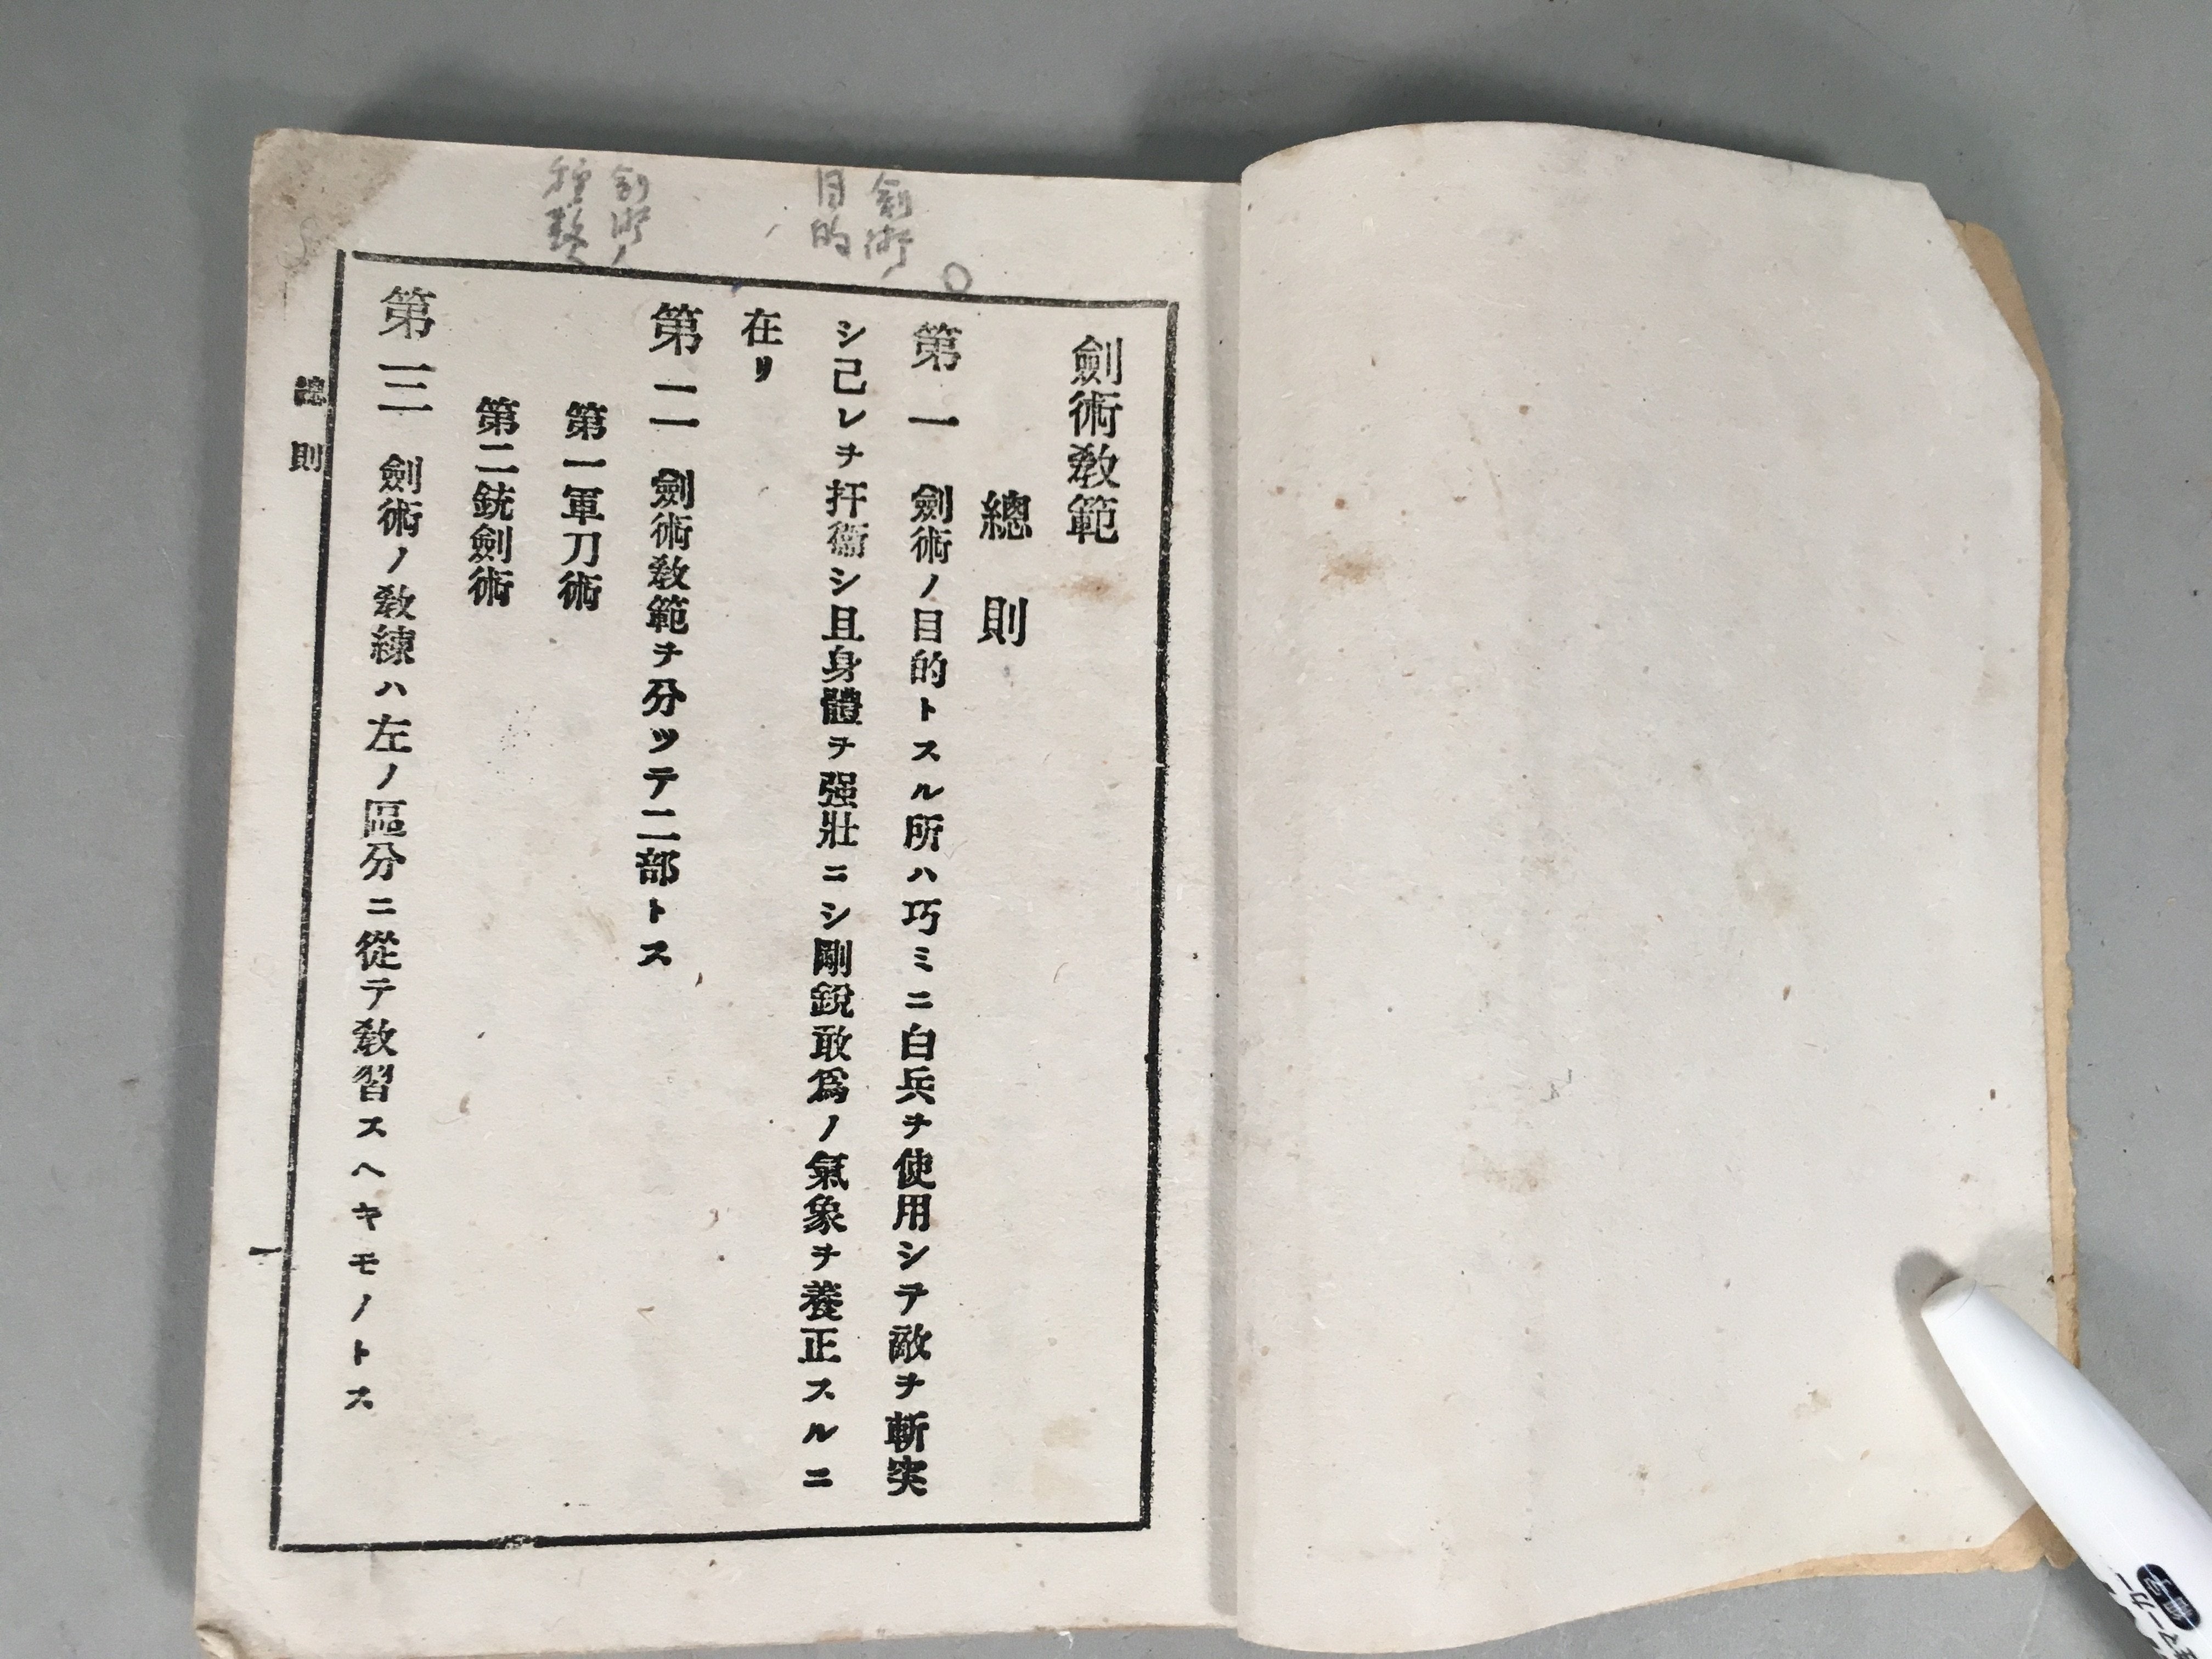 劍術敎範
總則
第一 劍術ノ目的トスル所ハ巧ミニ白兵ヲ使用シテ敵ヲ斬突
シ己レヲ扞衞シ且身體ヲ强壯ニシ剛銳敢爲ノ氣象ヲ養正スルニ
在リ
第二 劍術敎範ヲ分ツテ二部トス
第一軍刀術
第二銃劍術
第三 劍術ノ敎練ハ左ノ區分ニ從テ敎習スヘキモノトス
總則
一
剣術ノ
目的
剣術ノ
種類